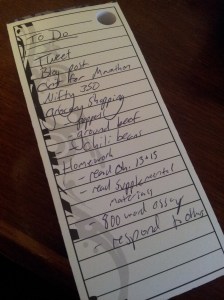 To Do
Tweet
Blog post
Nifty 350
Grocery Shopping
ground beef
chili beans
Homework
- read Ch. 13 & 15
- read supplemental
materials
800 word essay
respond to